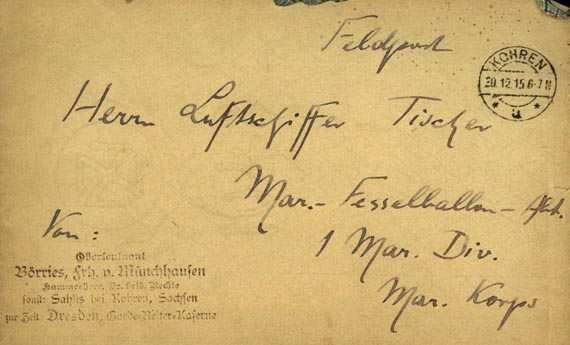 Feldpost
KOHREN
30.12.15.6-7N
* a *
Herrn Luftschiffer Tischer
Mar.- Fesselballon - Abt.
1 Mar. Div.
Mar. Korps
Von:
Oberleutnant
Börries, Frh. v. Münchhausen
Kammerherr, Dr. beid. Rechte
sonst: Sahlis bei Kohren, Sachsen
zur Zeit Dresden, Garde-Reiter-Kaserne